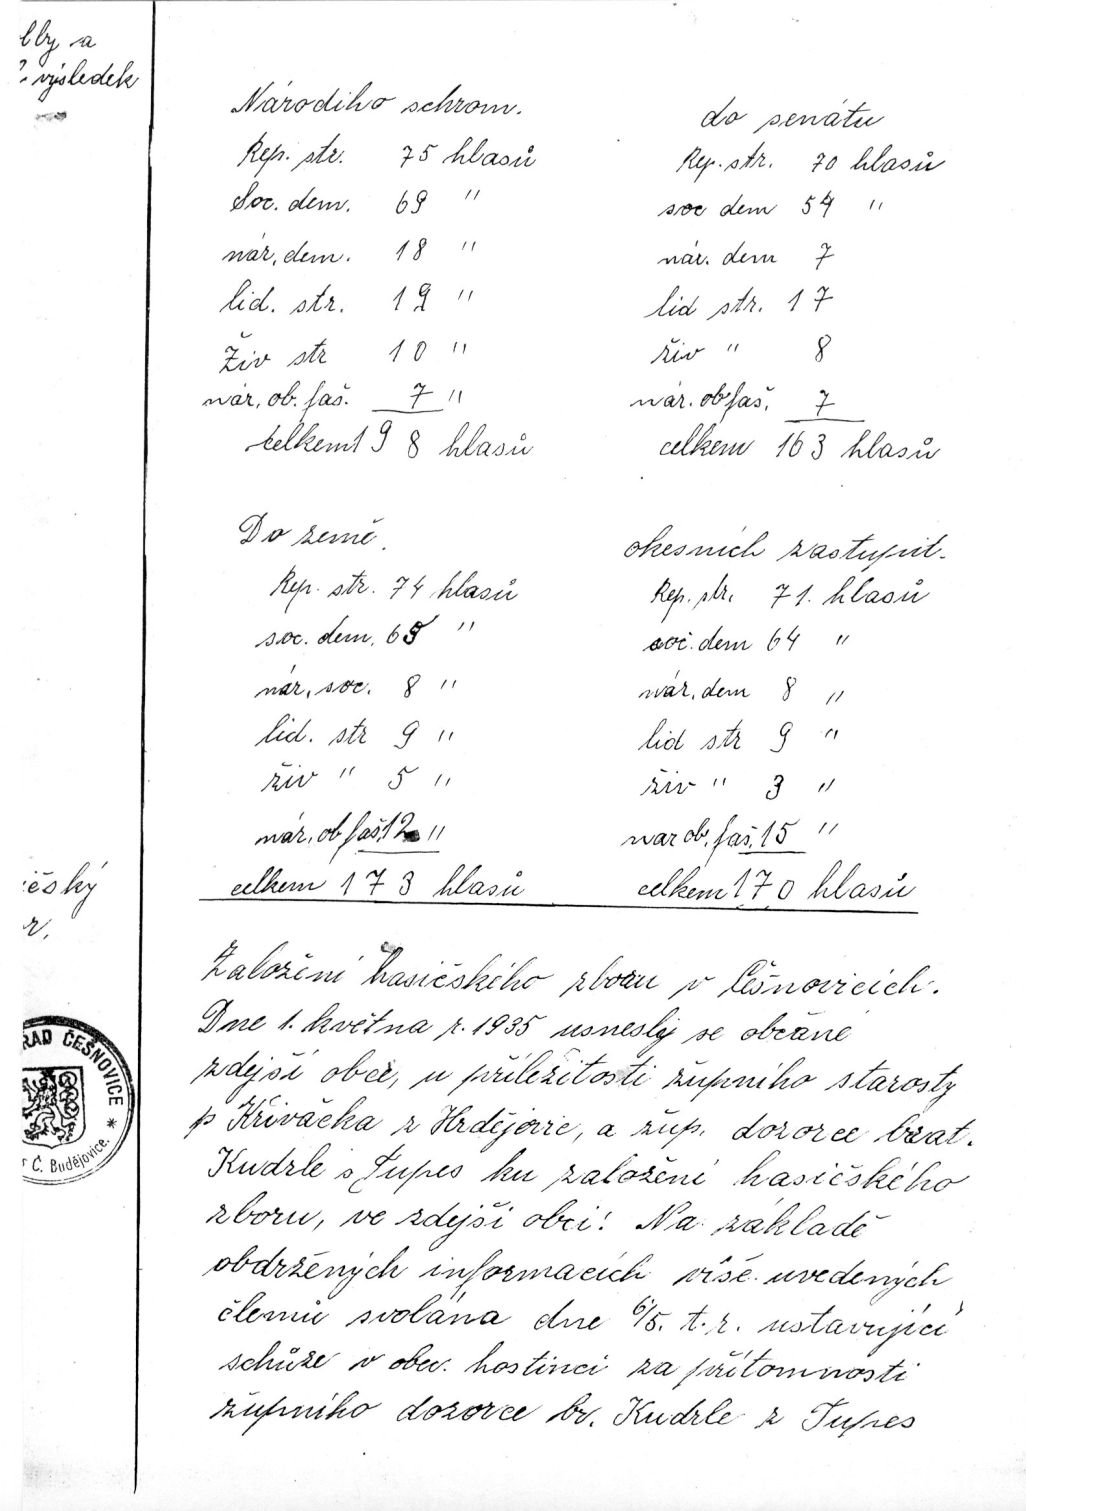 lby a
výsledek
Národího schrom.
Rep. str. 75 hlasů
Soc. dem. 69 "
nár. dem. 18 "
lid. str. 19 "
Živ str 10 "
nár. ob. faš. 7 "
celkem 198 hlasů
do senátu
Rep. str. 70 hlasů
soc dem 54 "
nár. dem 7
lid str. 17
živ " 8
nár. ob faš. 7
celkem 163 hlasů
Do země
Rep. str. 74 hlasů
soc. dem. 65 "
nár. soc. 8 "
lid. str 9 "
živ " 5 "
nár. ob faš 12 "
celkem 173 hlasů
okesních zastupit.
Rep. str. 71. hlasů
soc. dem 64 "
nár. dem 8 "
lid str 9 "
živ " 3 "
nar ob. faš. 15 "
celkem 170 hlasů
český
r.
Založení hasičského zboru v Češnovicích.
Dne 1. května r. 1935 usnesly se občané
zdejší obce, u příležitosti župního starosty
p Křiváčka z Hrdějovic, a žup. dozorce brat.
Kudrle s Tupes ku založení hasičského
zboru, ve zdejší obci! Na základě
obdržených informacích více uvedených
členů svolána dne 6/5. t. r. ustavující
schůze v obec. hostinci za přítomnosti
župního dozorce br. Kudrle z Tupes
ŘAD ČEŠNOVICE *
r Č. Budějovice.